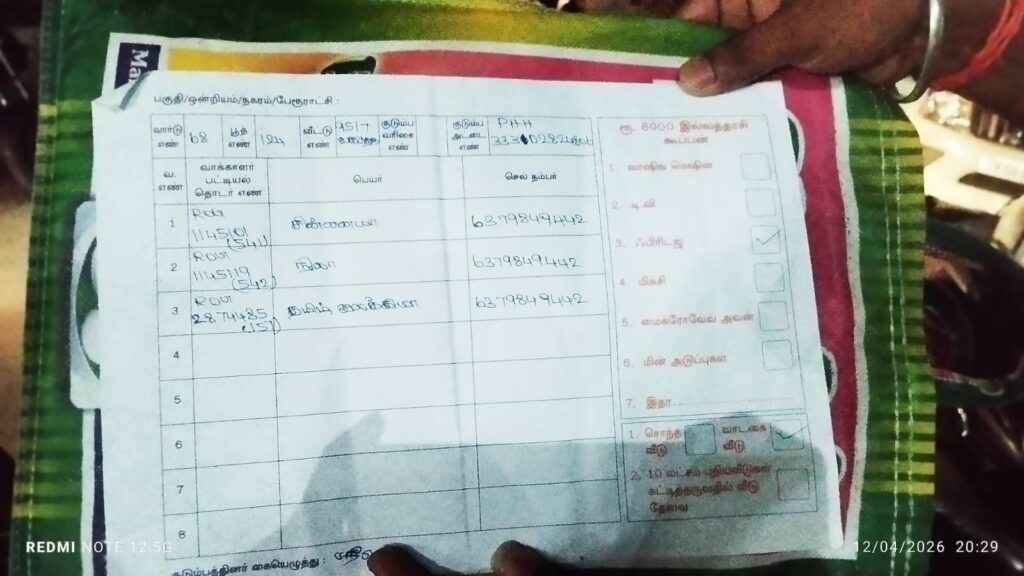 Ma
பகுதி/ஒன்றியம்/நகரம்/பேரூராட்சி :
வார்டு எண் 68 பூத் எண் 124 வீட்டு எண் 95/7 குடும்ப வரிசை எண் குடும்ப அட்டை எண் PHH
வ. எண் வாக்காளர் பட்டியல் தொடர் எண் பெயர் செல் நம்பர்
1 1145101 (541) சின்னையா 6379849442
2 1145119 (542) நிலா 6379849442
3 2874485 (157) தமிழ் 6379849442
4
5
6
7
8
குடும்பத்தினர் கையெழுத்து :
ரூ. 8000 இல்லத்தரசி கூப்பன்
1. வாஷிங் மெஷின்
2 டி.வி
3. ஃபிரிட்ஜ்
4. மிக்சி
5. மைக்ரோவேவ் அவன்
6. மின் அடுப்புகள்
7. இதர
1. சொந்த வீடு வாடகை வீடு
2. 10 லட்சம் புதியவீடுகள் கட்டித்தருவதில் வீடு தேவை
REDMI NOTE 12 5G
12/04/2026 20:29